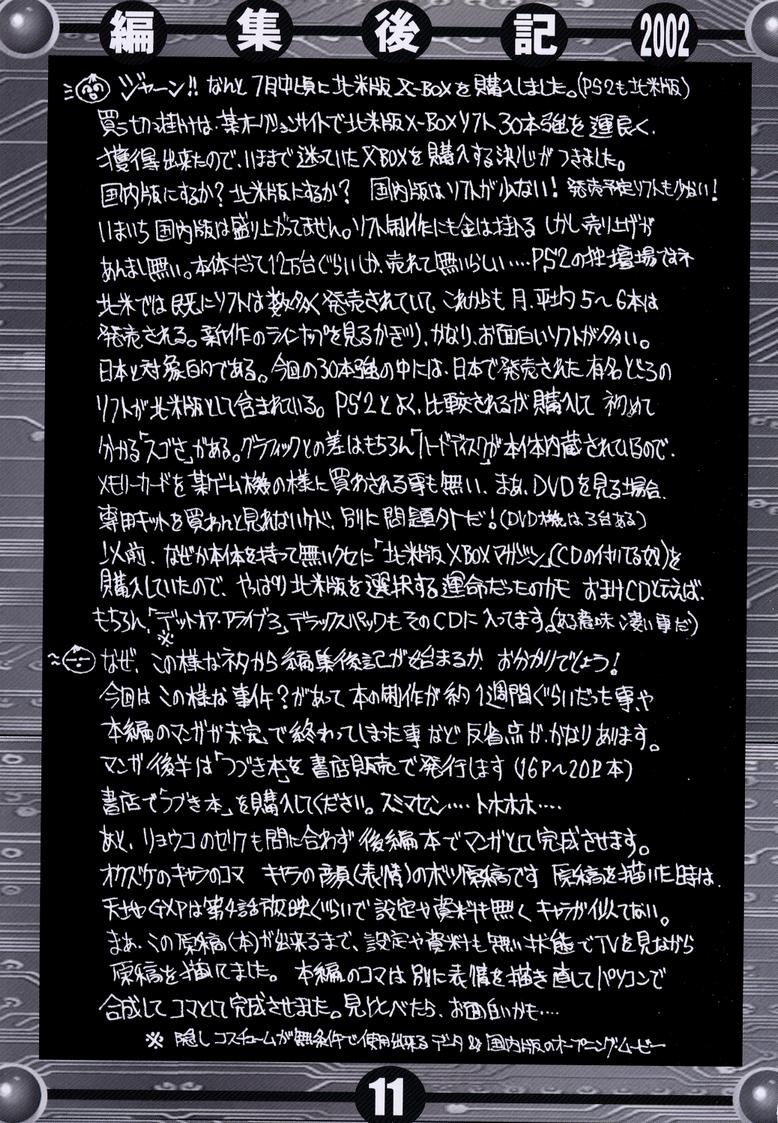 編集後記 2002
ジャーン!! なんと7月中頃に北米版X-BOXを購入しました。(PS2も北米版)
買う切っ掛けは、某オークションサイトで北米版X-BOXソフト30本強を運良く、
獲得出来たので、いままで迷っていたXBOXを購入する決心がつきました。
国内版にするか？北米版にするか？ 国内版はソフトが少ない！発売予定ソフトも少ない！
いまいち国内版は盛り上がってません。ソフト制作にも金は掛る しかし売り上げが
あんまし無い。本体だって12万台ぐらいしか、売れて無いらしい‥‥PS2の独壇場ですネ
北米では既にソフトは数多く発売されていて、これからも月、平均5〜6本は
発売される。新作のラインナップを見るかぎり、かなり、お面白いソフトが多い。
日本と対象的である。今回の30本強の中には、日本で発売された有名どころの
ソフトが北米版として含まれている。PS2とよく、比較されるが購入して 初めて
分かる「スゴさ」がある。グラフィックとの差はもちろん「ハードディスク」が本体内蔵されているので、
メモリーカードを某ゲーム機の様に買わされる事も無い、まあ、DVDを見る場合、
専用キットを買わんと見れないケド、別に問題外だ！(DVD機は3台ある)
以前、なぜか本体を持って無いクセに「北米版XBOXマガジン」(CDの付いてる奴)を
購入していたので、やっぱり北米版を選択する運命だったのかも おまけCDと云えば、
もちろん「デットオア・アライブ3」デラックスパックもそのCDに入ってます。(ある意味 凄い事だ)
※
なぜ、この様なネタから編集後記が始まるか お分かりでしょう！
今回はこの様な事件？があって本の制作が約1週間ぐらいだった事や
本編のマンガが未完、で終わってしまった事など反省点が、かなりあります。
マンガ後半は「つづき本」を書店販売で発行します(16P〜20P本)
書店で「つづき本」を購入してください。スミマセン‥‥トホホホ‥‥
あと、リョウコのセクも間に合わず 後編本でマンガとして完成させます。
オクヅケのキャラのコマ キャラの顔(表情)のボツ原稿です 原稿を描いた時は、
天地GXPは第4話放映ぐらいで設定や資料も無く キャラが似てない。
まあ、この原稿(本)が出来るまで、設定や資料も無い状態でTVを見ながら
原稿を描いてました。本編のコマは別に表情を描き直してパソコンで
合成してコマとして完成させました。見比べたら、お面白いかも‥‥
※ 隠しコスチュームが無条件で使用出来るデータ&国内版のオープニングムービー
11